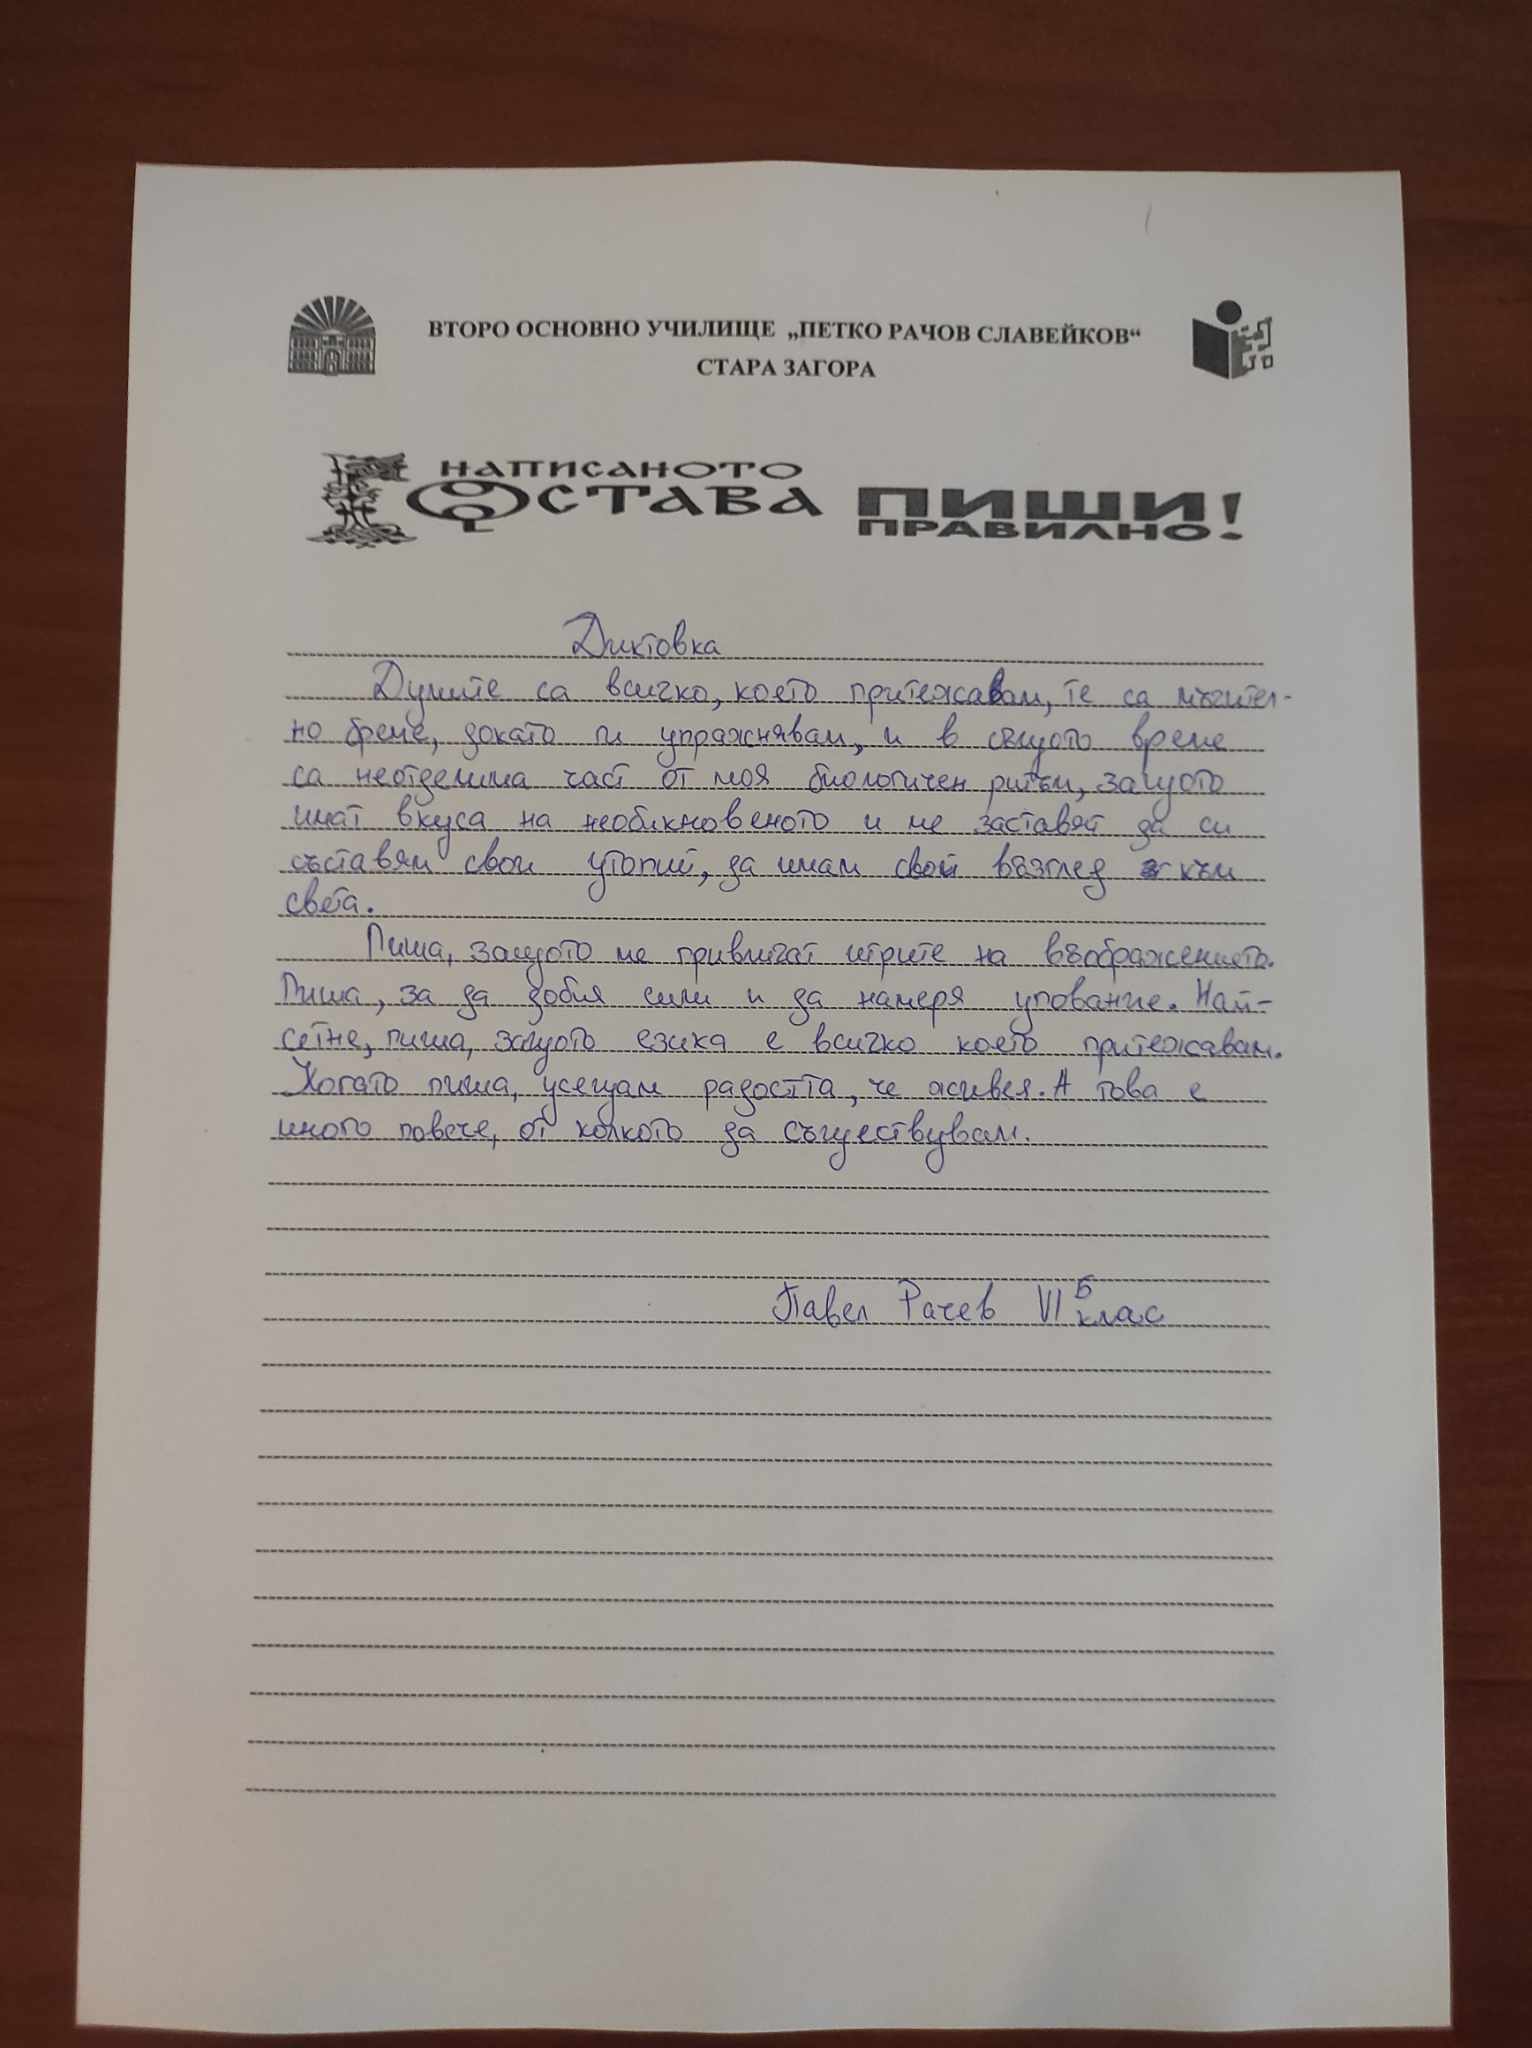 ВТОРО ОСНОВНО УЧИЛИЩЕ „ПЕТКО РАЧОВ СЛАВЕЙКОВ“
СТАРА ЗАГОРА
НАПИСАНОТО
ОСТАВА ПИШИ
ПРАВИЛНО!
Диктовка
Думите са всичко, което притежавам, те са мъчител-
но бреме, докато ги упражнявам, и в същото време
са неотделима част от моя биологичен ритъм, защото
имат вкуса на необикновеното и ме заставят да си
съставям свои утопии, да имам свой възглед към
света.
Пиша, защото ме привличат игрите на въображението.
Пиша, за да добия сили и да намеря упование. Най-
сетне, пиша, защото езика е всичко което притежавам.
Когато пиша, усещам радостта, че живея. А това е
много повече, от колкото да съществувам.
Павел Рачев VI Б клас